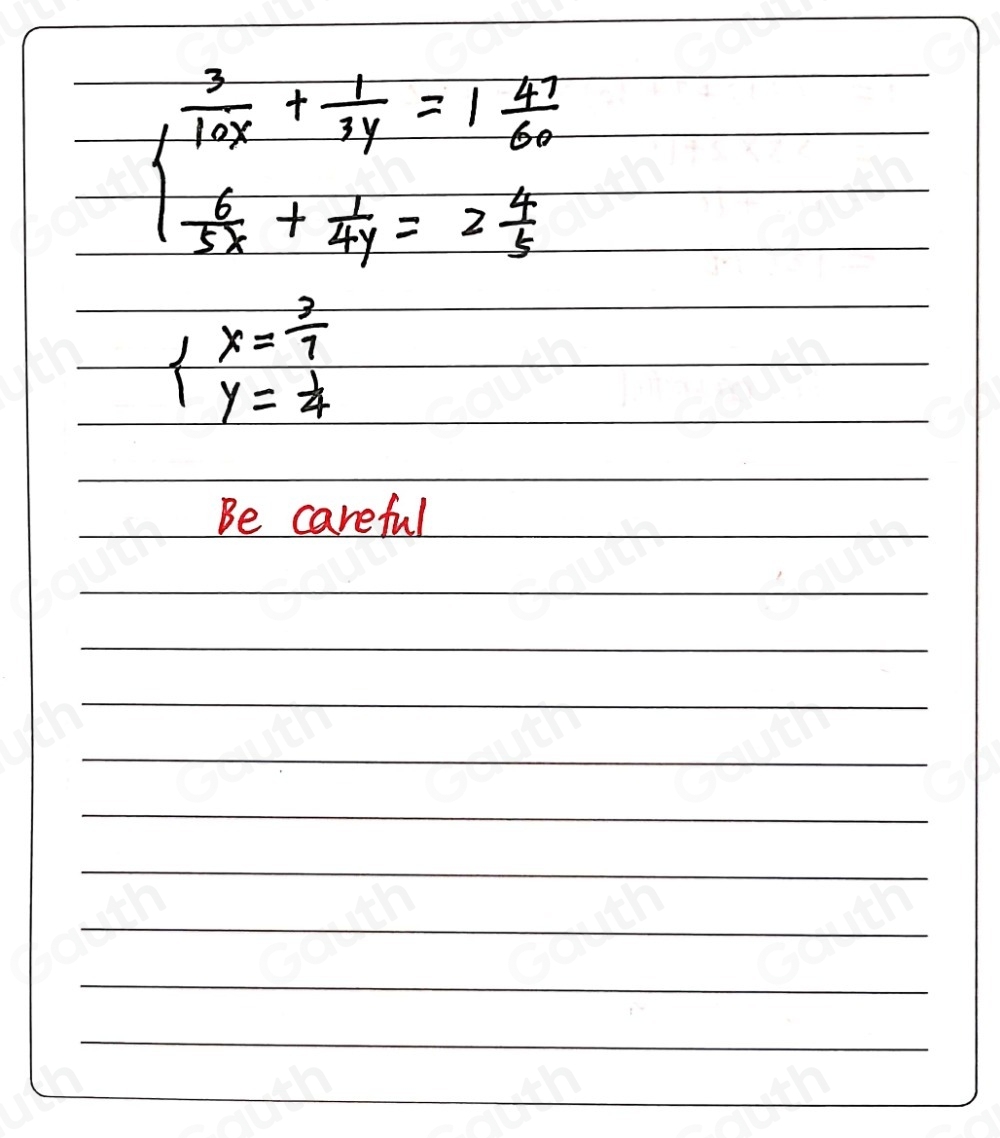 { 3/10x + 1/3y = 1 47/60
6/5x + 1/4y = 2 4/5
{ x = 3/7
y = 1/4
Be careful